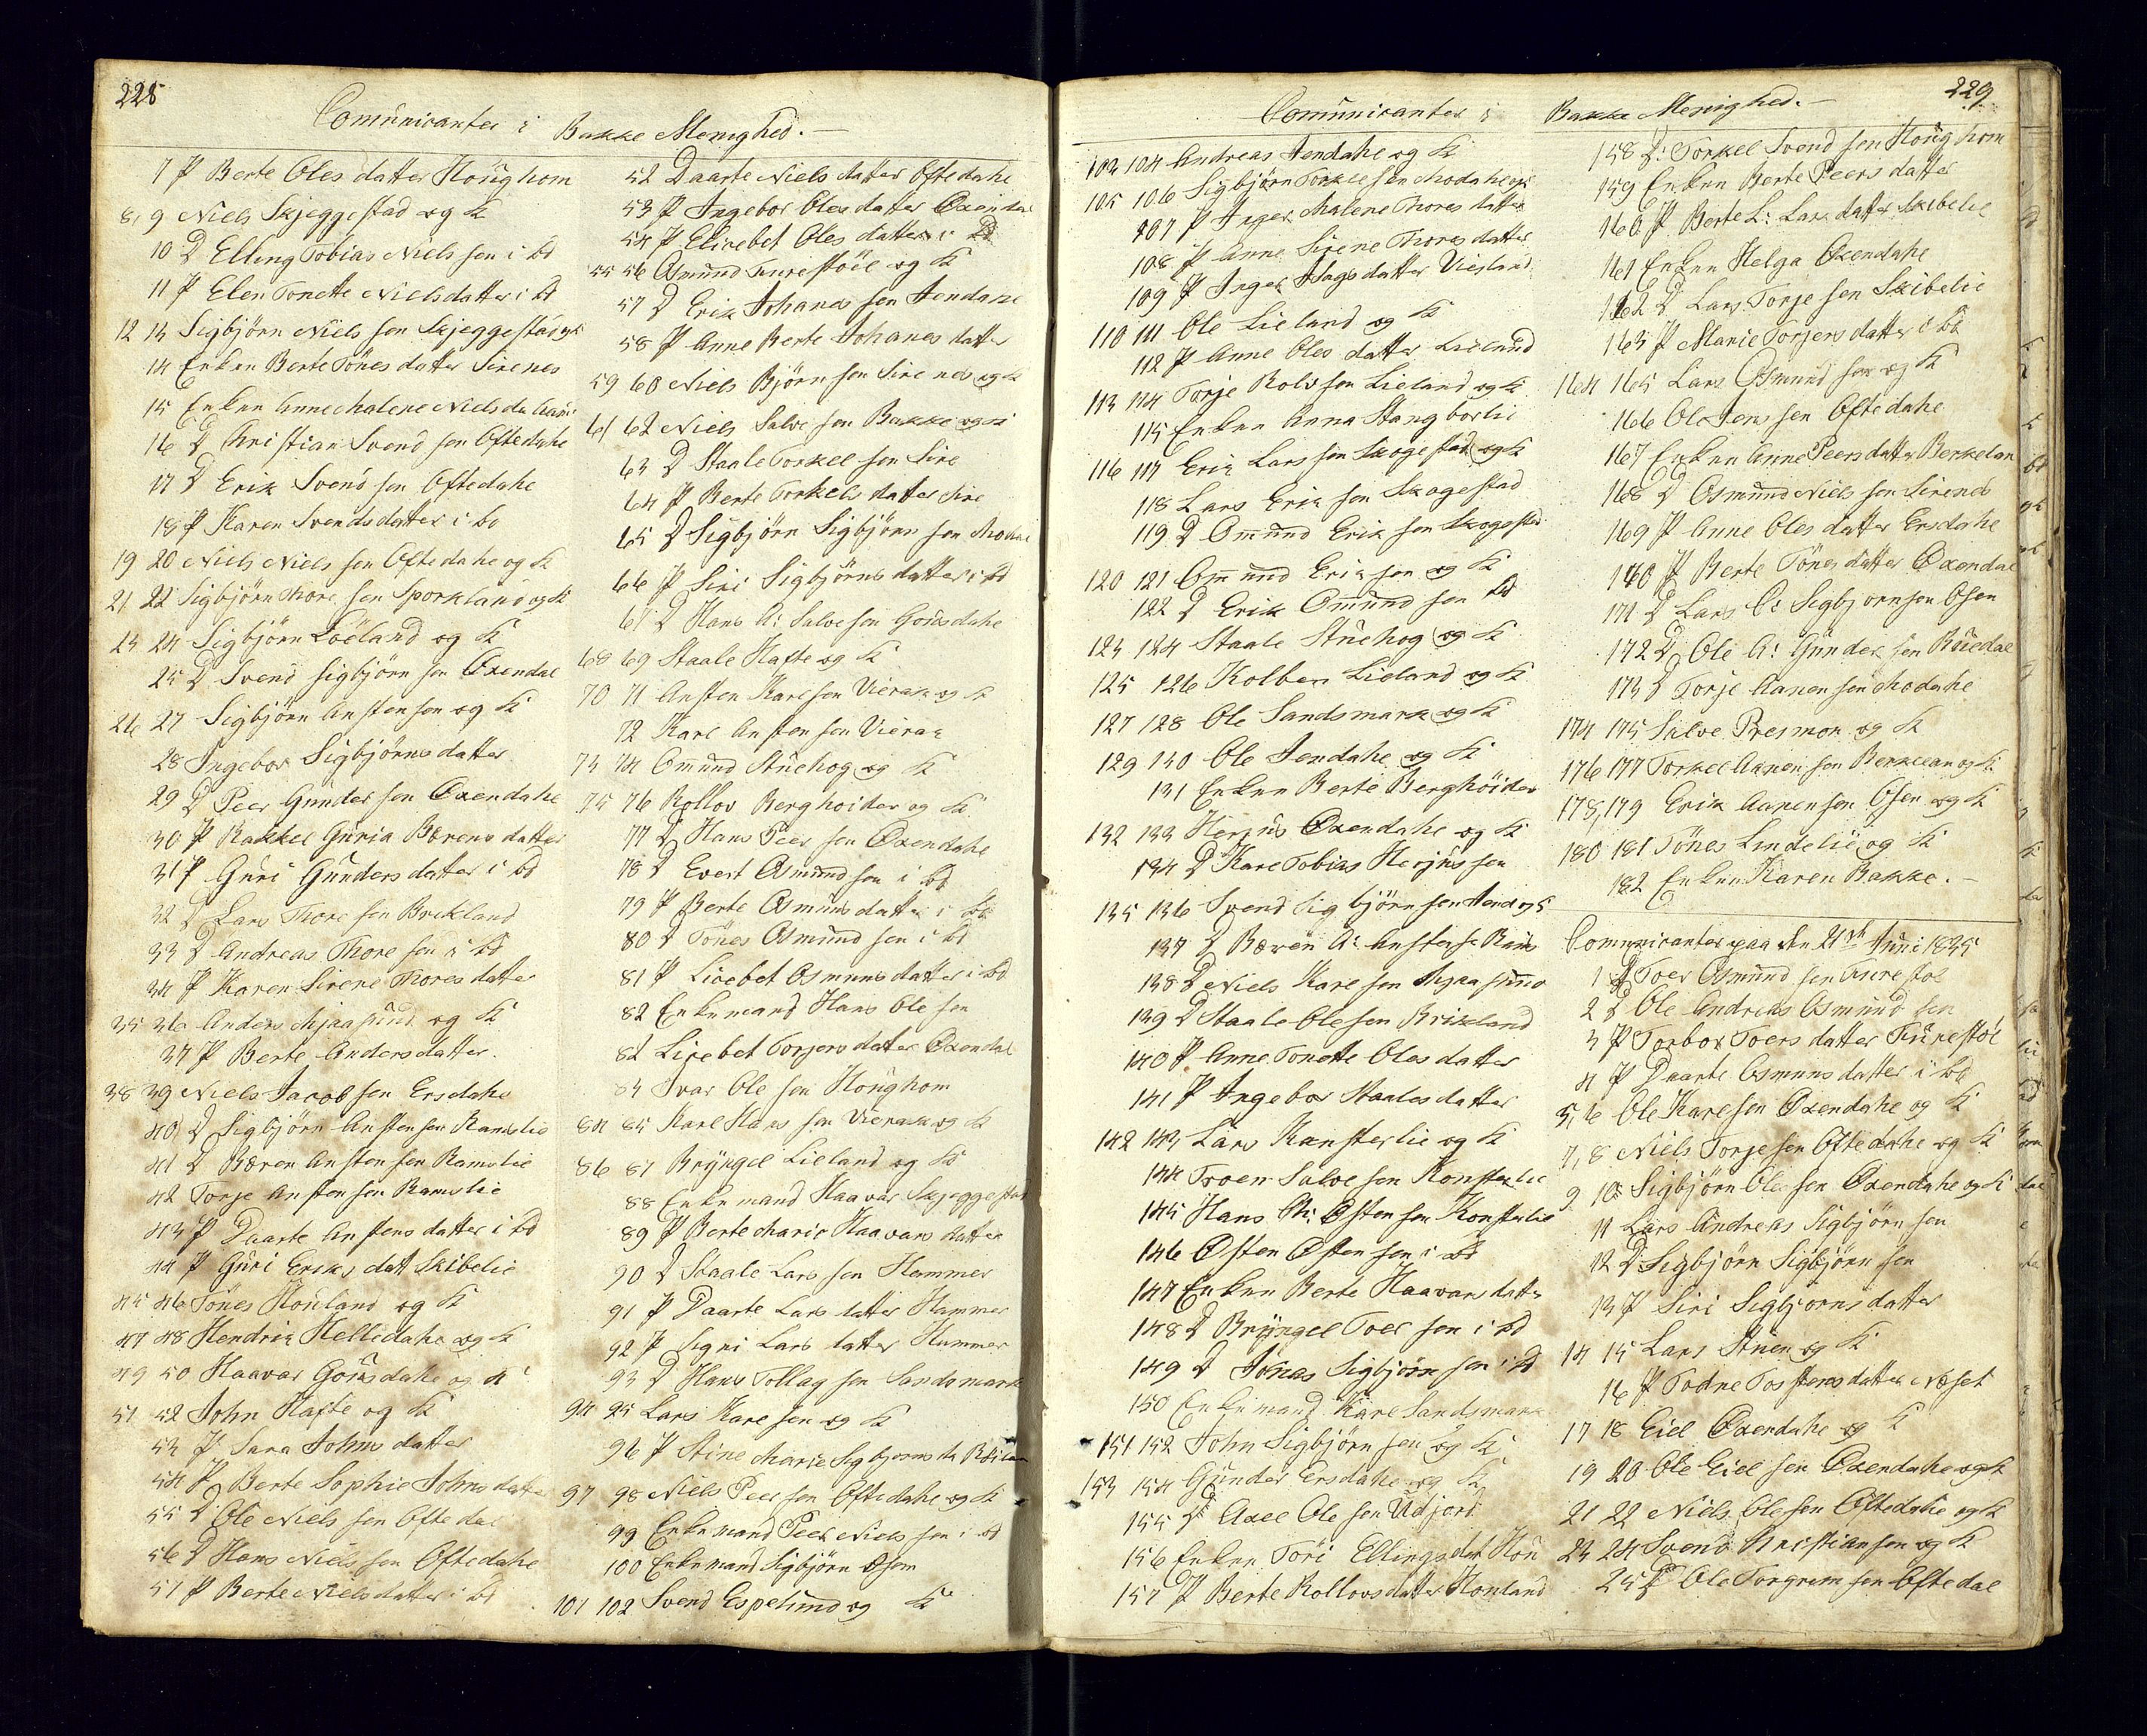 228
Comunicanter i Bakke Menighed. —
7 P Berte Oles datter Houghom
8, 9 Niels Skjeggestad og K
10 D Elling Tobias Niels sen i bd
11 P Elen Tonette Nielsdatter i bd
12 13 Sigbjörn Niels sen Skjeggestad og K
14 Enken Berte Tönes datter Sirenes
15 Enken Anne Malene Niels da
16 D Christian Svend sen Oftedahe
17 D Erik Svend sen Oftedahe
18 P Karen Svends datter i bd
19 20 Niels Niels sen Oftedahe og K
21 22 Sigbjörn Thore sen Sporkland og K
23 24 Sigbjörn Löeland og K
25 D Svend Sigbjörn sen Oxendal
26 27 Sigbjörn Anstensen og K
28 Ingebor Sigbjörns datter
29 D Peer Gunder sen Oxendahe
30 P Rakkel Guria Bærens datter
31 P Guri Gunders datter i bd
32 D Lars Thore sen Birkland
33 D Andreas Thore sen i bd
34 P Karen Sirene Thores datter
35 36 Anders Mjaasund og K
37 P Berte Anders datter.
38 39 Niels Jacob sen Ersdahe
40 D Sigbjörn Ansten sen Ramslie
41 D Bæren Ansten sen Ramslie
42 Torje Ansten sen Ramslie
43 P Daarte Anstens datter i bd
44 P Guri Eriks datt Skibelie
45 46 Tönes Houland og K
47 48 Hendrik Helledahe og K
49 50 Haavar Gousdahe og K
51 52 John Hafte og K
53 P Sara Johns datter
54 P Berte Sophie Johns datter
55 D Ole Niels sen Oftedal
56 D Hans Niels sen Oftedahe
51 P Berte Niels datter i bd
52 Daarte Niels datter Oftedahe
53 P Ingebor Oles datter Oxendal
54 P Elisebet Oles datter i bd
55 56 Osmund Furestöel og K
57 D Erik Johanes sen Jendahe
58 P Anne Berte Johanes datter
59 60 Niels Björn sen Sirenes og K
61 62 Niels Salve sen Bakke og K
63 D Staale Torkel sen Sire
64 P Berte Torkels datter Sire
65 D Sigbjörn Sigbjörn sen Moda
66 P Siri Sigbjörns datter i bd
67 D Hans A: Salvesen Gousdahe
68 69 Staale Hafte og K
70 71 Ansten Karlsen Vierak og K
72 Karl Ansten sen Vierak
73 74 Omund Stuehog og K
75 76 Rollov Berghöider og K
77 D Hans Peer sen Oxendahe
78 D Evert Osmund sen i bd
79 P Berte Osmuns datter i bd
80 D Tönes Osmund sen i bd
81 P Lisebet Osmuns datter i bd
82 Enkemand Hans Ole sen
82 Lisebet Torjers datter Oxendal
83 Ivar Ole sen Houghom
84 85 Karl Hans sen Vierak og K
86 87 Bryngel Lieland og K
88 Enkemand Haavar Skjeggestad
89 P Berte Marie Haavars datter
90 D Staale Lars sen Hammer
91 P Daarte Lars datter Hammer
92 P Signi Lars datter Hammer
93 D Hans Tollag sen Sandsmark
94 95 Lars Karl sen og K
96 P Stine Marie Sigbjorns da
97 98 Niels Peer sen Oftedahe og K
99 Enkemand Peer Niels sen i bd
100 Enkemand Sigbjörn Osen
101 102 Svend Espelund og K
229
Comunicanter i Bakke Menighed. —
103 104 Andreas Jendahe og K
105 106 Sigbjörn Torkelsen Modahe og K
107 P Inger Malene Thores datter
108 P Anne Sirene Thores datter
109 P Inger Aags datter Visland
110 111 Ole Lieland og K
112 P Anne Oles datter Lielund
113 114 Torje Rolvsen Lieland og K
115 Enken Anna Stangborlie
116 117 Erik Lars sen Skogestad og K
118 Lars Erik sen Skogestad
119 D Omund Erik sen Skogestad
120 121 Omund Erik sen og K
122 D Erik Omund sen bd
123 124 Staale Stuehog og K
125 126 Kolben Lieland og K
127 128 Ole Sandsmark og K
129 130 Ole Jendahe og K
131 Enken Berte Berghöider
132 133 Herjus Oxendahe og K
134 D Karl Tobias Herjus sen
135 136 Svend Sigbjörn sen Jend og K
137 D Bæren A: Anstense
138 D Niels Karl sen Mjaasund
139 D Staale Olesen Birkland
140 P Anne Tonette Oles datter
141 P Ingebor Staales datter
142 143 Lars Konsterlie og K
144 Troen Salve sen Konsterlie
145 Hans Osten sen Konsterlie
146 Osten Osten sen i bd
147 Enken Berte Haavars datter
148 D Bryngel Toer sen i bd
149 D Tönes Sigbjörn sen i bd
150 Enkemand Karl Sandsmark
151 152 John Sigbjörn sen og K
153 154 Gunder Ersdahe og K
155 D Axel Ole sen Udjord
156 Enken Töri Ellings dat Hou
157 P Berte Rollovs datter Houland
158 D: Torkel Svend sen Houghom
159 Enken Berte Peers datter
160 P Berte L: Lars datter Skibelie
161 Enken Helga Oxendahe
162 D Lars Torje sen Skibelie
163 P Marie Torjers datter i bd
164 165 Lars Osmund sen og K
166 Ole Jens sen Oftedahe
167 Enken Anne Peers datter Berkelan
168 D Osmund Niels sen Sirenes
169 P Anne Oles datter Ersdahe
170 P Berte Tönes datter Oxendal
171 D Lars O: Sigbjornsen Osen
172 D Ole A: Gunder sen Röiedal
173 D Torje Aanensen Modahe
174 175 Salve Presmon og K
176 177 Torkel Aanen sen Berkelan og K
178, 179 Erik Aanensen Osen og K
180 181 Tönes Lindelie og K
182 Enken Karen Bakke. —
Comunicanter paa den 21de Juni 1835
1 D Toer Osmund sen Furestöl
2 D Ole Andreas Osmund sen
3 P Torbor Toers datter Furestöl
4 P Daarte Osmuns datter i bd
5, 6 Ole Karlsen Oxendahe og K
7, 8 Niels Torjesen Oftedahe og K
9 10 Sigbjörn Ole sen Oxendahe og K
11 Lars Andreas Sigbjörn sen
12 D Sigbjörn Sigbjörn sen
13 P Siri Sigbjorns datter
14 15 Lars Stuen og K
16 P Todne Tostens datter Næset
17 18 Eiel Oxendahe og K
19 20 Ole Eiel sen Oxendahe og K
21 22 Niels Olesen Oftedahe og K
23 24 Svend Kristiansen og K
25 D Ole Torgrim sen Oftedal